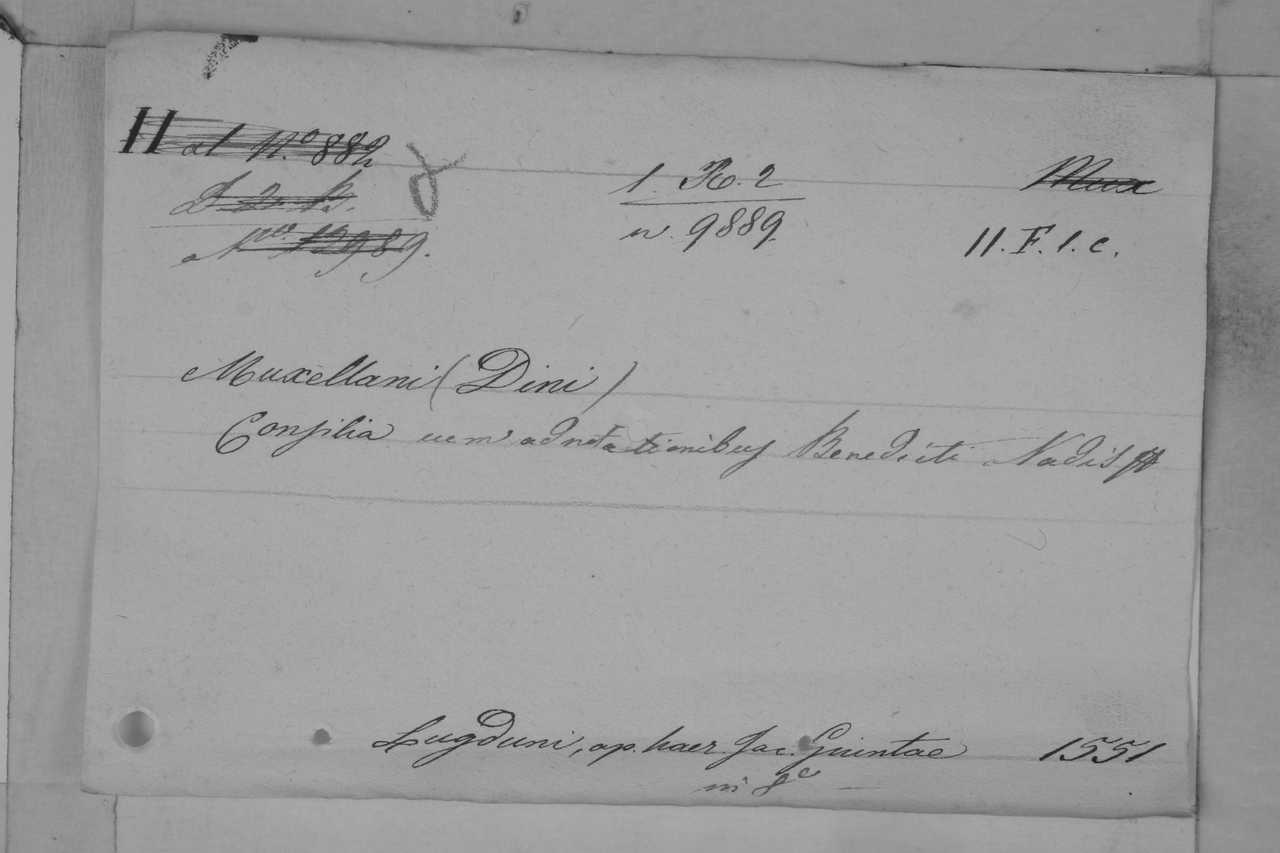 II al N.º 882
1. R. 2
Mux
n. 9889.
II. F. 1. c.
Muxellani (Dini)
Consilia cum adnotationibus Benedicti Nadis
Lugduni, ap. haer. Jac. Giuntae 1551
in 8º